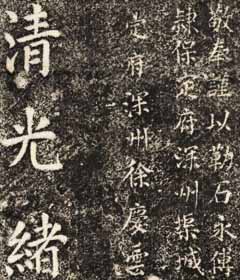 敬奉誰以勒石永傳
隸保定府深州城
定府深州徐慶雲
清光緒